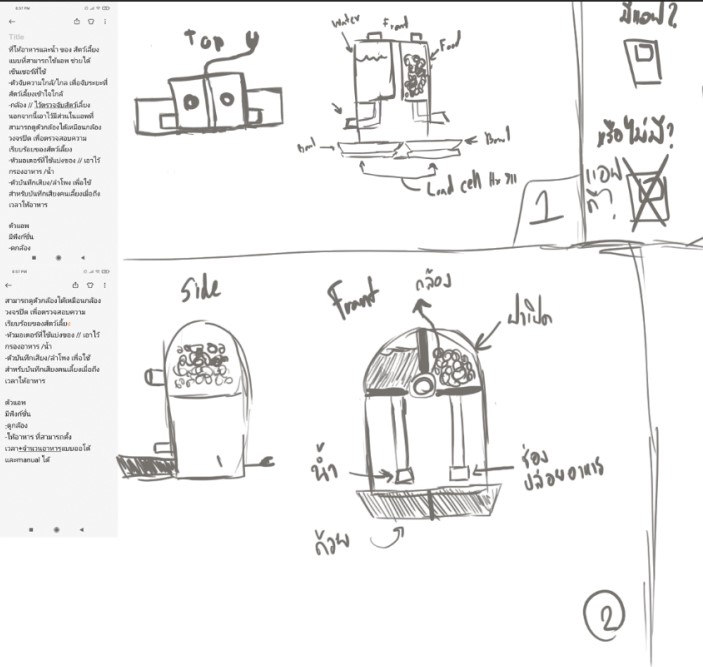 8:57 PM
Title
ที่ให้อาหารและน้ำ ของ สัตว์เลี้ยง
แบบที่สามารถใช้แอพ ช่วยได้
เซ็นเซอร์ที่ใช้
-ตัวจับความใกล้/ไกล เพื่อจับระยะที่
สัตว์เลี้ยงเข้าใจใกล้
-กล้อง // ไว้ตรวจจับสัตว์เลี้ยง
นอกจากนี้เอาไว้มีส่วนในแอพที่
สามารถดูตัวกล้องได้เหมือนกล้อง
วงจรปิด เพื่อตรวจสอบความ
เรียบร้อยของสัตว์เลี้ยง
-ตัวมอเตอร์ที่ใช้แบ่งของ // เอาไว้
กรองอาหาร /น้ำ
-ตัวบันทึกเสียง/ลำโพง เพื่อใช้
สำหรับบันทึกเสียงคนเลี้ยงเมื่อถึง
เวลาให้อาหาร
ตัวแอพ
มีฟังก์ชั่น
-ดูกล้อง
8:57 PM
สามารถดูตัวกล้องได้เหมือนกล้อง
วงจรปิด เพื่อตรวจสอบความ
เรียบร้อยของสัตว์เลี้ย
-ตัวมอเตอร์ที่ใช้แบ่งของ // เอาไว้
กรองอาหาร /น้ำ
-ตัวบันทึกเสียง/ลำโพง เพื่อใช้
สำหรับบันทึกเสียงคนเลี้ยงเมื่อถึง
เวลาให้อาหาร
ตัวแอพ
มีฟังก์ชั่น
-ดูกล้อง
-ให้อาหาร ที่สามารถตั้ง
เวลา+จำนวนอาหารแบบออโต้
และmanual ได้
TOP
Front
Water
Food
Bowl
Bowl
Load cell Hx 711
1
มีแอป?
หรือไม่มี?
แอป
ดี?
Side
Front
กล้อง
ฝาเปิด
น้ำ
ช่อง
ปล่อยอาหาร
ถ้วย
2